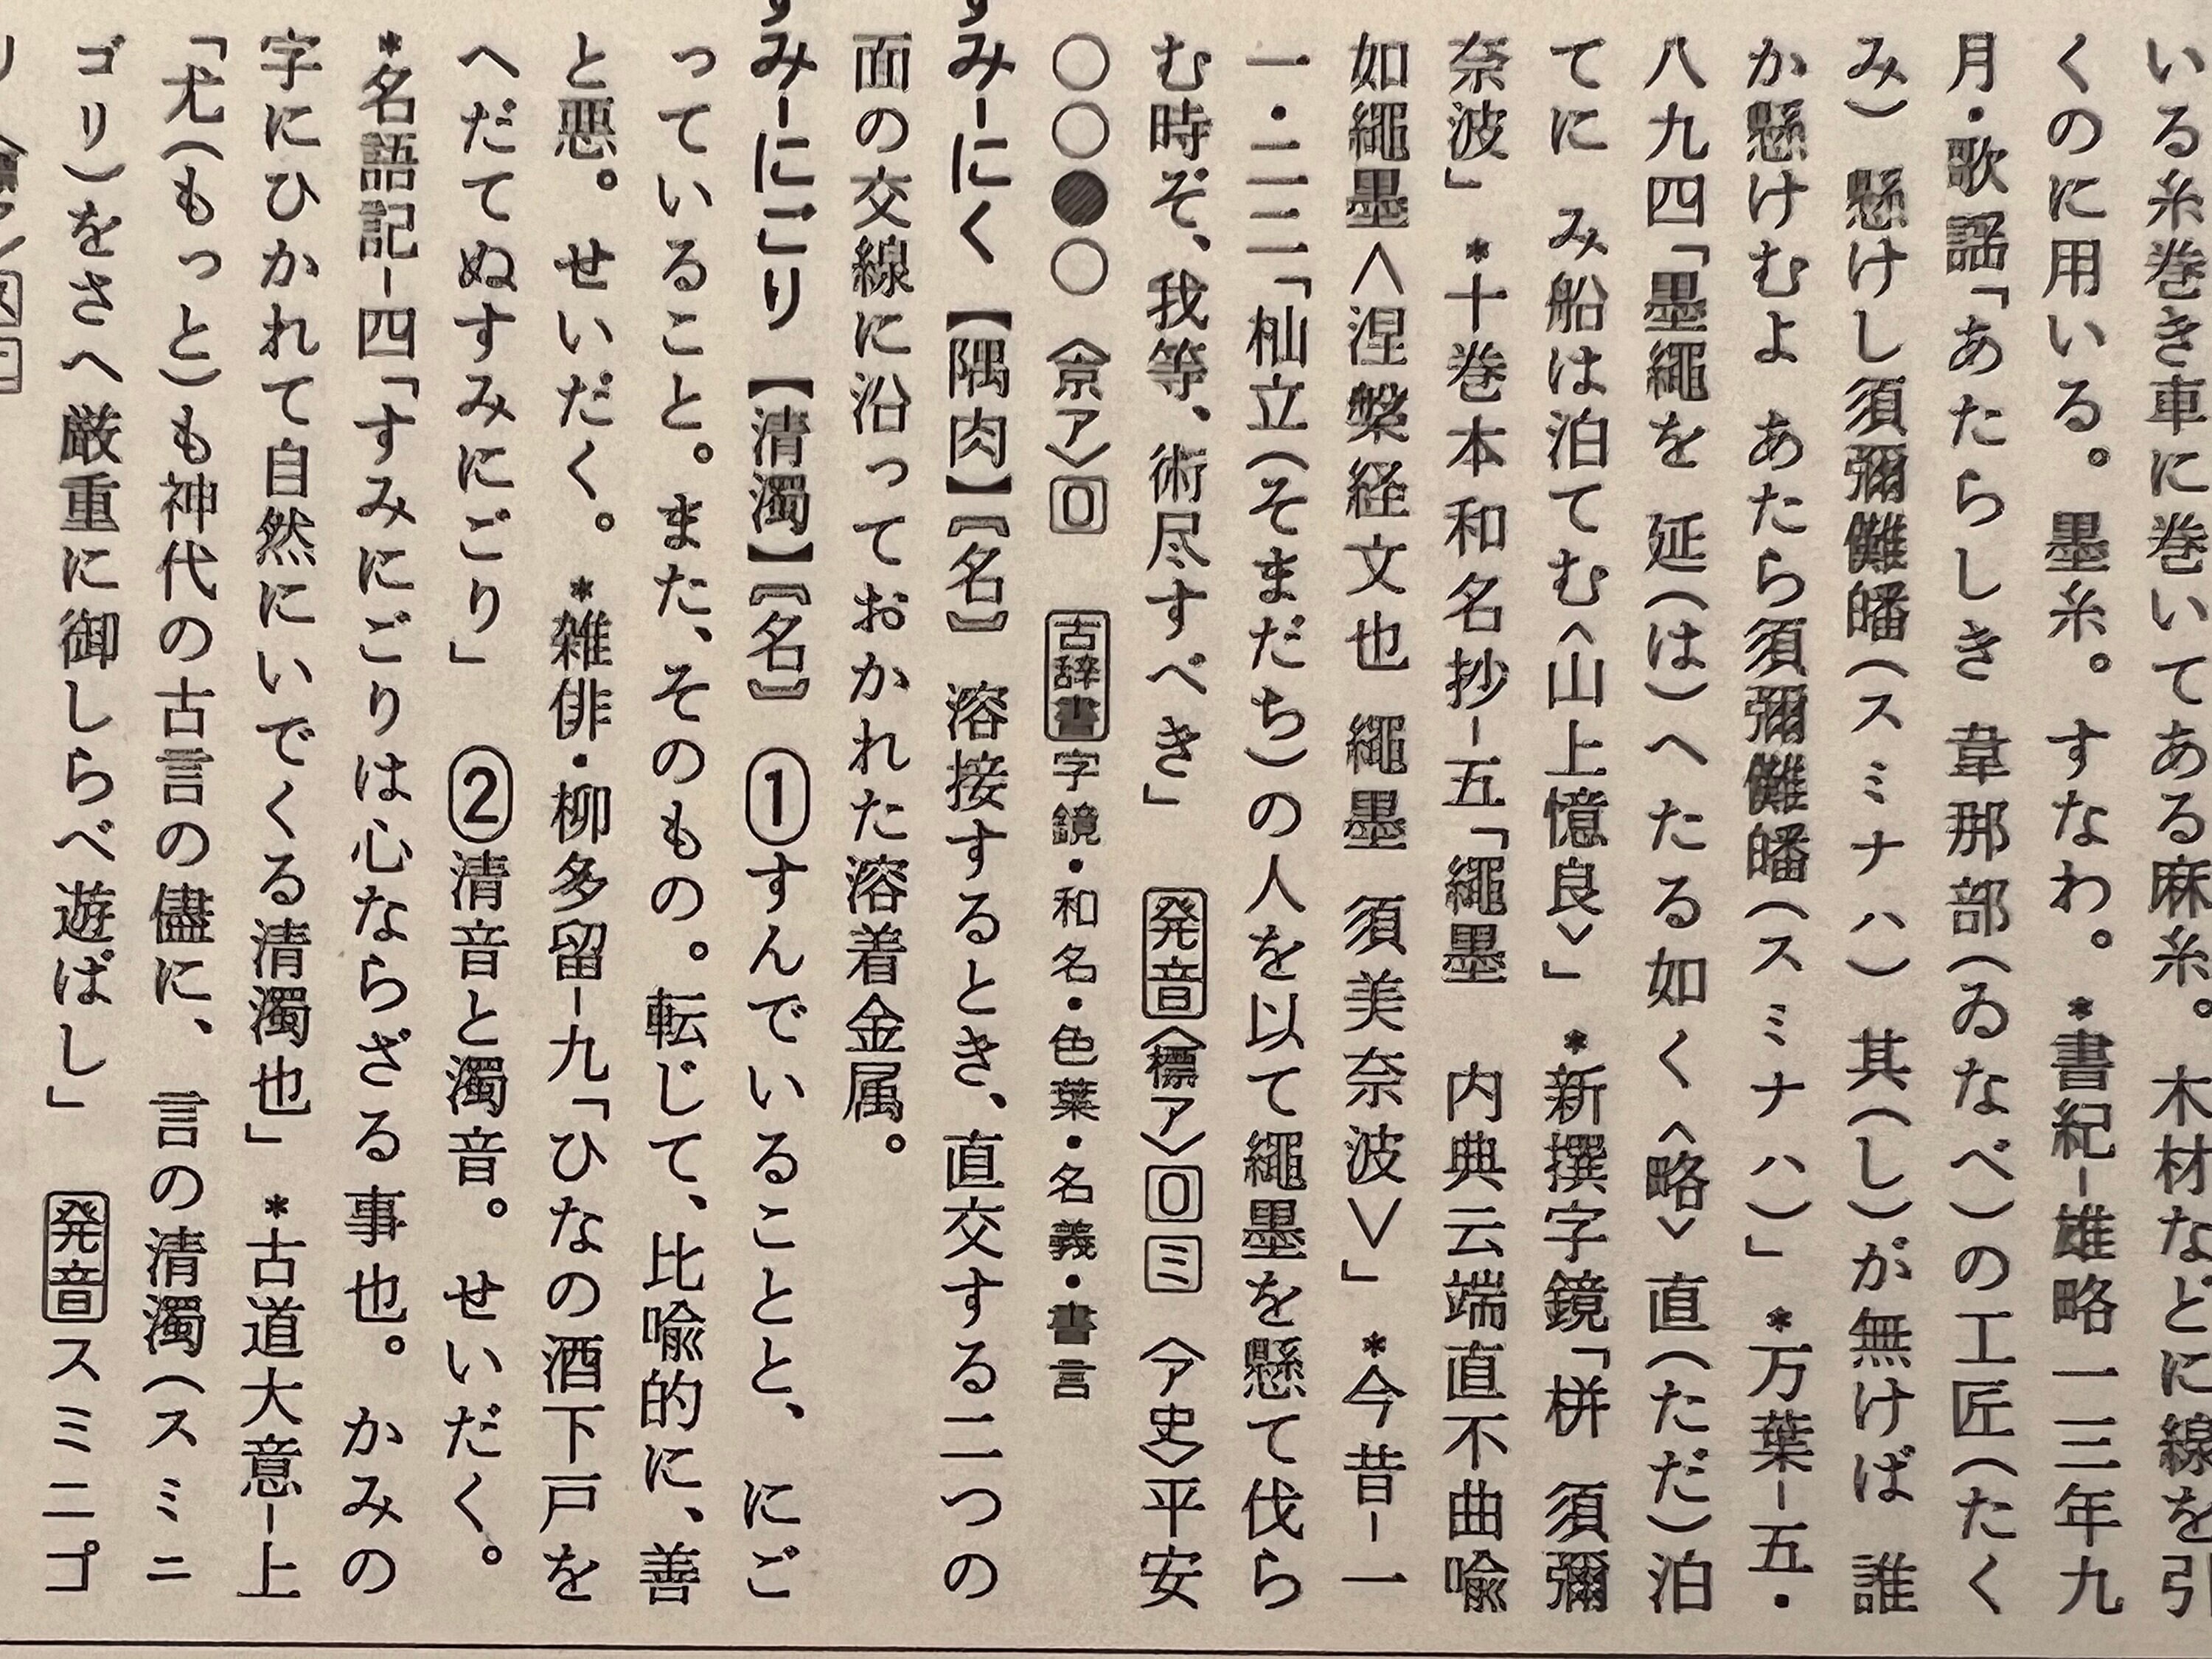 いる糸巻き車に巻いてある麻糸。木材などに線を引
くのに用いる。墨糸。すなわ。*書紀-雄略一三年九
月・歌謡「あたらしき 韋那部(ゐなべ)の工匠(たく
み) 懸けし須彌儺皤(スミナハ) 其(し)が無けば 誰
か懸けむよ あたら須彌儺皤(スミナハ)」 *万葉-五・
八九四「墨縄を 延(は)へたる如く〈略〉直(ただ)泊
てに み船は泊てむ〈山上憶良〉」 *新撰字鏡「栟 須彌
奈波」 *十巻本和名抄-五「縄墨 内典云端直不曲喩
如縄墨〈涅槃経文也 縄墨 須美奈波〉」 *今昔-一
一・二二「杣立(そまだち)の人を以て縄墨を懸て伐ら
む時ぞ、我等、術尽すべき」 発音〈標ア〉0ミ 〈ア史〉平安
○○●○ 〈京ア〉0 古辞書字鏡・和名・色葉・名義・書言
すみ-にく【隅肉】〘名〙 溶接するとき、直交する二つの
面の交線に沿っておかれた溶着金属。
すみ-にごり【清濁】〘名〙 ①すんでいることと、にご
っていること。また、そのもの。転じて、比喩的に、善
と悪。せいだく。 *雑俳・柳多留-九「ひなの酒下戸を
へだてぬすみにごり」 ②清音と濁音。せいだく。
*名語記-四「すみにごりは心ならざる事也。かみの
字にひかれて自然にいでくる清濁也」 *古道大意-上
「尤(もっと)も神代の古言の儘に、言の清濁(スミニ
ゴリ)をさへ厳重に御しらべ遊ばし」 発音スミニゴ